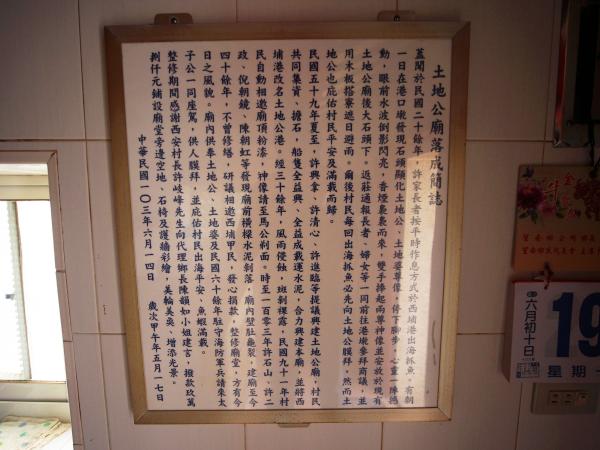 土地公廟落成簡誌
蓋聞於民國二十餘年，許家長者按平時作息方式於西埔港出海抓魚。有朝
一日在港口墘發現石頭顯化土地公、土地婆尊像，停下腳步，心靈一陣撼
動，眼前水波倒影閃亮，香煙裊裊而來，雙手捧起兩尊神像並安放於現有
土地公廟後大石頭下。返莊通報長者、婦女等一同前往港墘參拜商議，並
用木板搭寮遮日避雨。爾後村民每回出海抓魚必先向土地公膜拜，然而土
地公也庇佑村民平安及滿載而歸。
民國五十九年夏至，許興拿、許清心、許進臨等提議興建土地公廟，村民
共同集資、擔石，船隻全益興、全益成載運水泥，合力興建本廟，並將西
埔港改名土地公港。經三十餘年，風雨侵蝕，斑剝裸露，民國九十一年村
民自動相邀廟頂粉漆，神像請至馬公剃面。時至一百零三年許石山、許二
政、倪朝鏡、陳朝虹等發現廟前橫樑水泥剝落，廟內壁肚龜裂，建廟至今
四十餘年，不曾修繕，研議相邀西埔甲民，發心捐款，整修廟堂，方有今
日之風貌。廟內供奉土地公、土地婆及民國六十年駐守海防軍兵請來太
子公一同座駕，供人膜拜，並庇佑村民出海平安、魚蝦滿載。
整修期間感謝西安村長許岐峰先生向代理鄉長陳韻如小姐建言，撥款玖萬
捌仟元鋪設廟堂旁邊空地、石椅及護牆彩繪，美輪美奐、增添光景。
中華民國一〇三年六月一四日　歲次甲午年五月一七日
19
六月初十日
星期一